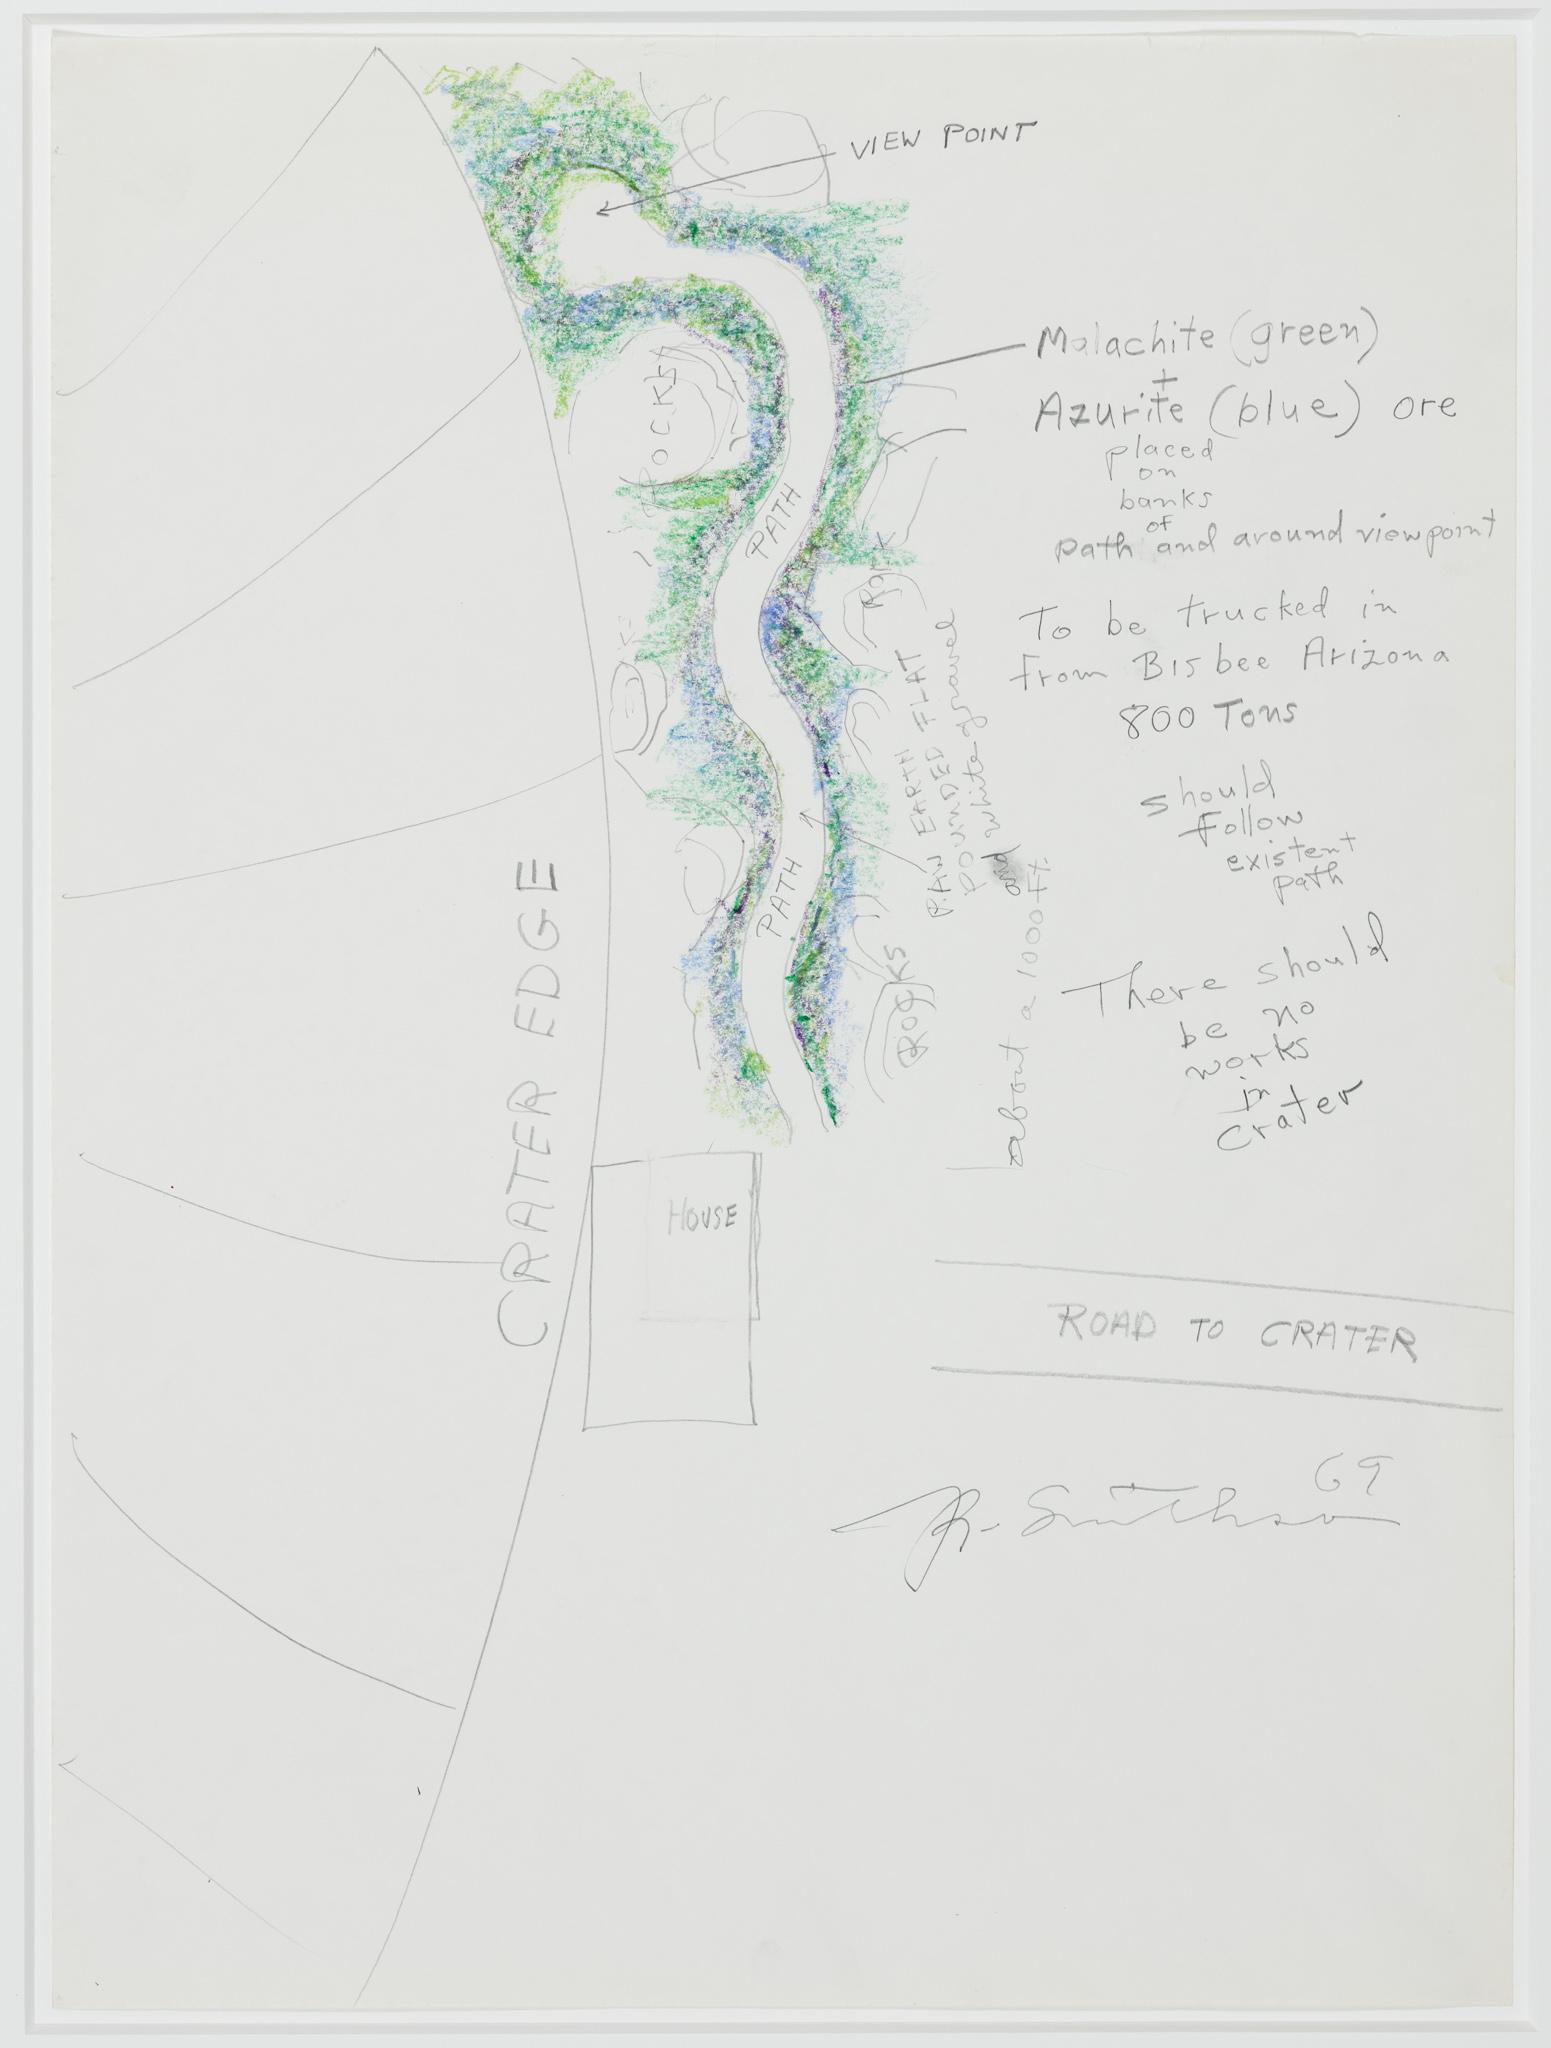 VIEW POINT
Malachite (green)
+
Azurite (blue) ore
placed
on
banks
of
path and around viewpoint
ROCKS
PATH
Rock
To be trucked in
from Bisbee Arizona
800 Tons
RAW EARTH
POUNDED FLAT
and white gravel
should
follow
existent
path
PATH
about a 1000 FT.
CRATER EDGE
Rocks
There should
be no
works
in
crater
HOUSE
ROAD TO CRATER
R. Smithson 69